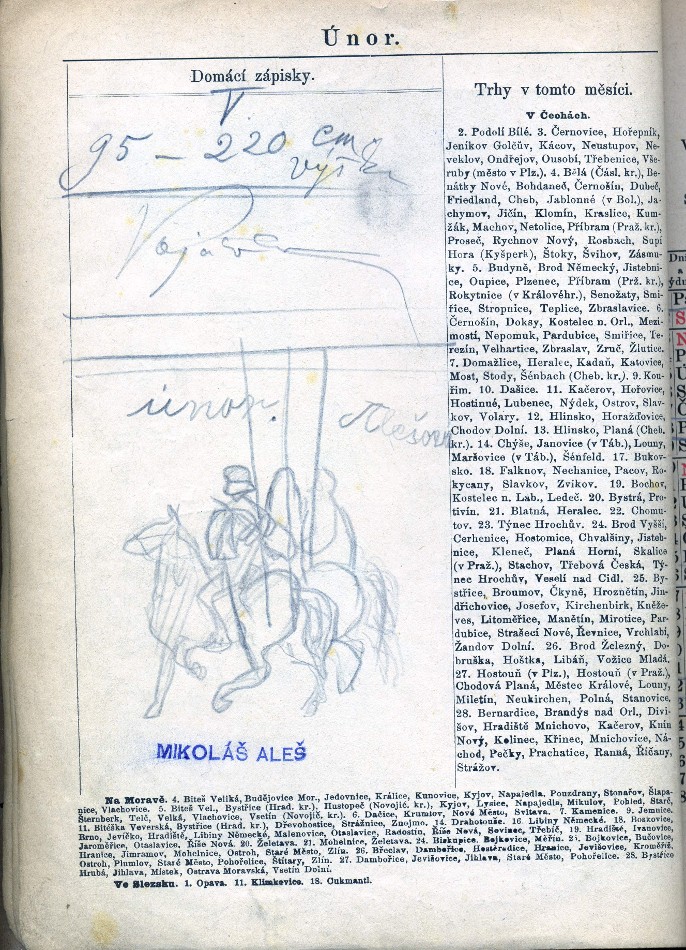 Únor.
Domácí zápisky.
V.
95 — 220 cm
výšk
únor.
MIKOLÁŠ ALEŠ
Trhy v tomto měsíci.
V Čechách.
2. Podolí Bílé. 3. Černovice, Hořepník,
Jeníkov Golčův, Kácov, Neustupov, Ne-
veklov, Ondřejov, Ousobí, Třebenice, Vše-
ruby (město v Plz.). 4. Bělá (Čásl. kr.), Be-
nátky Nové, Bohdaneč, Černošín, Dubeč,
Friedland, Cheb, Jablonné (v Bol.), Já-
chymov, Jičín, Klomín, Kraslice, Kum-
žák, Machov, Netolice, Příbram (Praž. kr.),
Proseč, Rychnov Nový, Rosbach, Supí
Hora (Kyšperk), Štoky, Švihov, Zásmu-
ky. 5. Budyně, Brod Německý, Jistebni-
ce, Oupice, Plzenec, Příbram (Prž. kr.),
Rokytnice (v Královéhr.), Senožaty, Smi-
řice, Stropnice, Teplice, Zbraslavice. 6.
Černošín, Doksy, Kostelec n. Orl., Mezi-
mostí, Nepomuk, Pardubice, Smiřice, Te-
rezín, Velhartice, Zbraslav, Zruč, Žlutice.
7. Domažlice, Heralec, Kadaň, Katovice,
Most, Stody, Šénbach (Cheb. kr.). 9. Kou-
řim. 10. Dašice. 11. Kačerov, Hořovice,
Hostinné, Lubenec, Nýdek, Ostrov, Slav-
kov, Volary. 12. Hlinsko, Horažďovice,
Chodov Dolní. 13. Hlinsko, Planá (Cheb.
kr.). 14. Chýše, Janovice (v Táb.), Louny,
Maršovice (v Táb.), Šénfeld. 17. Bukov-
sko. 18. Falknov, Nechanice, Pacov, Ro-
kycany, Slavkov, Zvíkov. 19. Bochov,
Kostelec n. Lab., Ledeč. 20. Bystrá, Pro-
tivín. 21. Blatná, Heralec. 22. Chomu-
tov. 23. Týnec Hrochův. 24. Brod Vyšší,
Cerhenice, Hostomice, Chvalšiny, Jisteb-
nice, Kleneč, Planá Horní, Skalice
(v Praž.), Stachov, Třebová Česká, Tý-
nec Hrochův, Veselí nad Cidl. 25. By-
střice, Broumov, Čkyně, Hroznětín, Jin-
dřichovice, Josefov, Kirchenbirk, Kněže-
ves, Litoměřice, Manětín, Mirotice, Par-
dubice, Strašecí Nové, Řevnice, Vrchlabí,
Žandov Dolní. 26. Brod Železný, Do-
bruška, Hoštka, Libáň, Vožice Mladá.
27. Hostouň (v Plz.), Hostouň (v Praž.),
Chodová Planá, Městec Králové, Louny,
Miletín, Neukirchen, Polná, Stanovice.
28. Bernardice, Brandýs nad Orl., Divi-
šov, Hradiště Mnichovo, Kačerov, Knín
Nový, Kolinec, Křinec, Mnichovice, Ná-
chod, Pečky, Prachatice, Ranná, Říčany,
Strážov.
Na Moravě. 4. Biteš Veliká, Budějovice Mor., Jedovnice, Králice, Kunovice, Kyjov, Napajedla, Pouzdrany, Stonařov, Šlapa-
nice, Vlachovice. 5. Biteš Vel., Bystřice (Hrad. kr.), Hustopeč (Novojič. kr.), Kyjov, Lysice, Napajedla, Mikulov, Pohled, Starč,
Šternberk, Telč, Velká, Vlachovice, Vsetín (Novojič. kr.). 6. Dačice, Krumlov, Nové Město, Svitava. 7. Kamenice. 9. Jemnice.
11. Bitéška Veverská, Bystřice (Hrad. kr.), Dřevohostice, Strážnice, Znojmo. 14. Drahotouše. 16. Libiny Německé. 18. Boskovice,
Brno, Jevíčko, Hradiště, Libiny Německé, Malenovice, Otaslavice, Radostín, Říše Nová, Sovinec, Třebíč. 19. Hradiště, Ivanovice,
Jaroměřice, Otaslavice, Říše Nová. 20. Želetava. 21. Mohelnice, Želetava. 24. Biskupice, Bojkovice, Měřín. 25. Bojkovice, Bučovice,
Hranice, Jimramov, Mohelnice, Ostroh, Staré Město, Zlín. 26. Břeclav, Dambořice, Hostěradice, Hranice, Jevišovice, Kroměříž,
Ostroh, Plumlov, Staré Město, Pohořelice, Štítary, Zlín. 27. Dambořice, Jevišovice, Jihlava, Staré Město, Pohořelice. 28. Bystřice
Hrubá, Jihlava, Místek, Ostrava Moravská, Vsetín Dolní.
Ve Slezsku. 1. Opava. 11. Klimkovice. 18. Cukmantl.